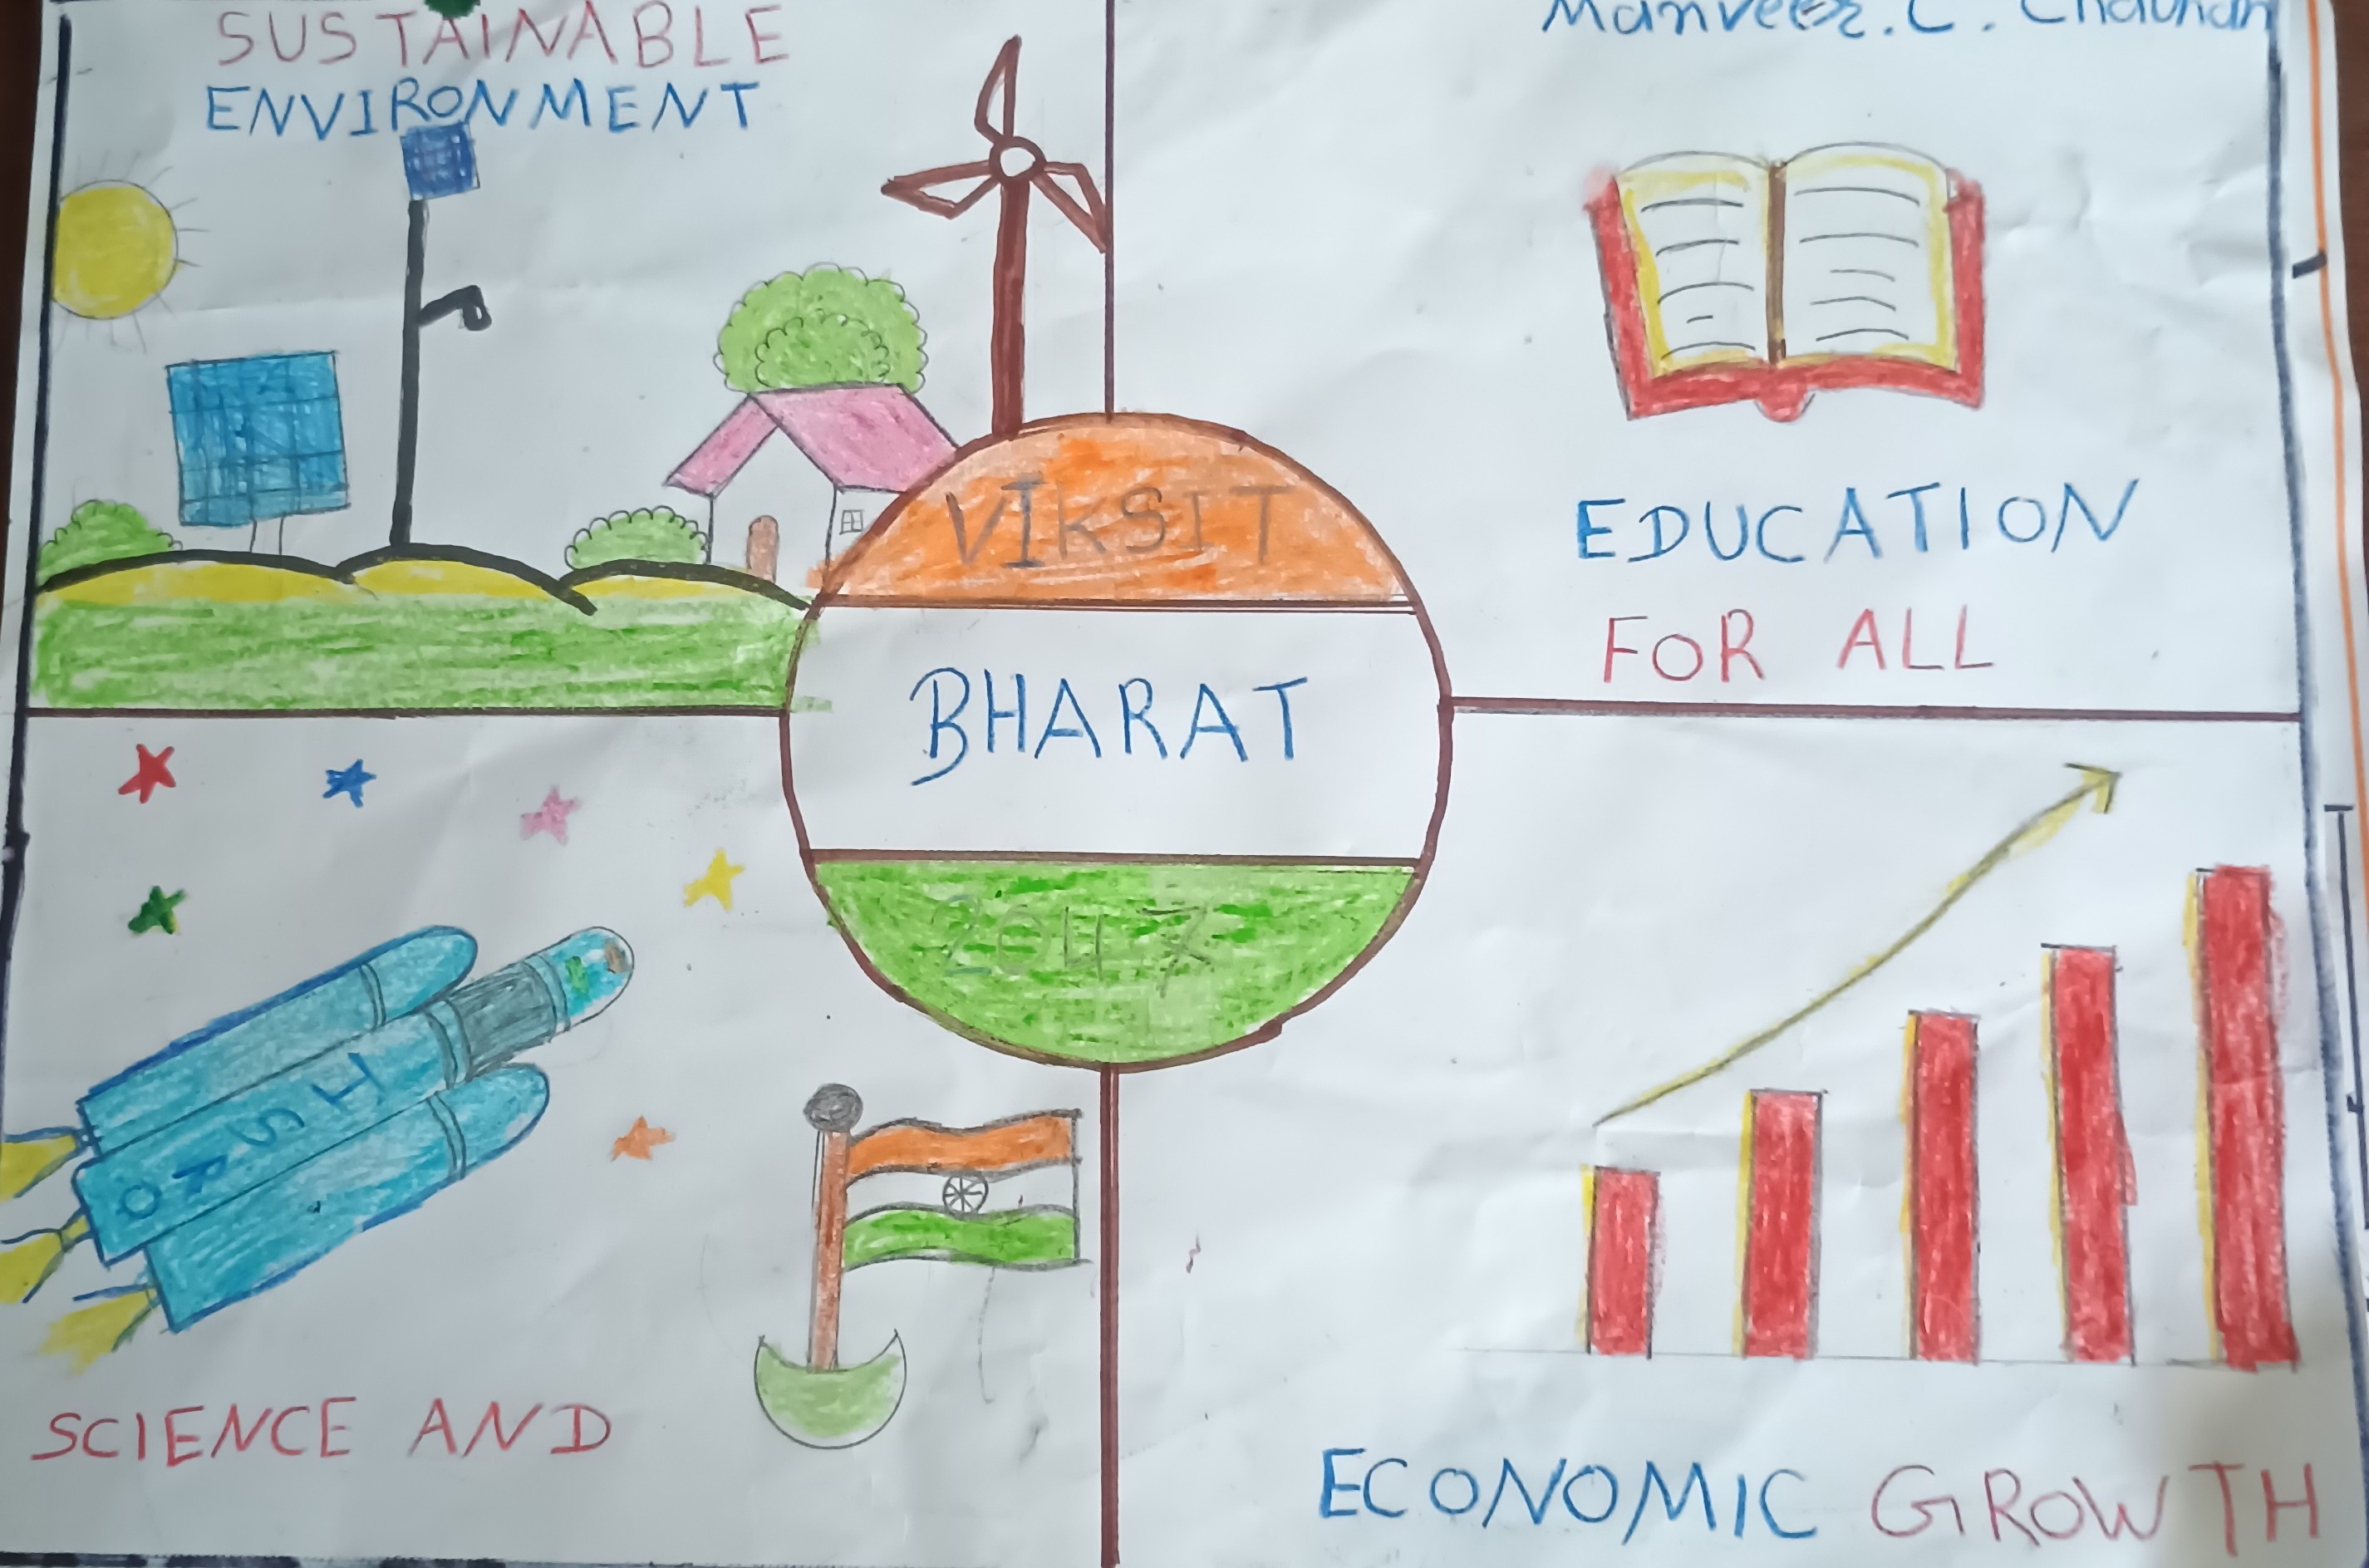 SUSTAINABLE
ENVIRONMENT
Manveer. C. Chauhan
EDUCATION
FOR ALL
VIKSIT
BHARAT
2047
ISRO
SCIENCE AND
ECONOMIC GROWTH